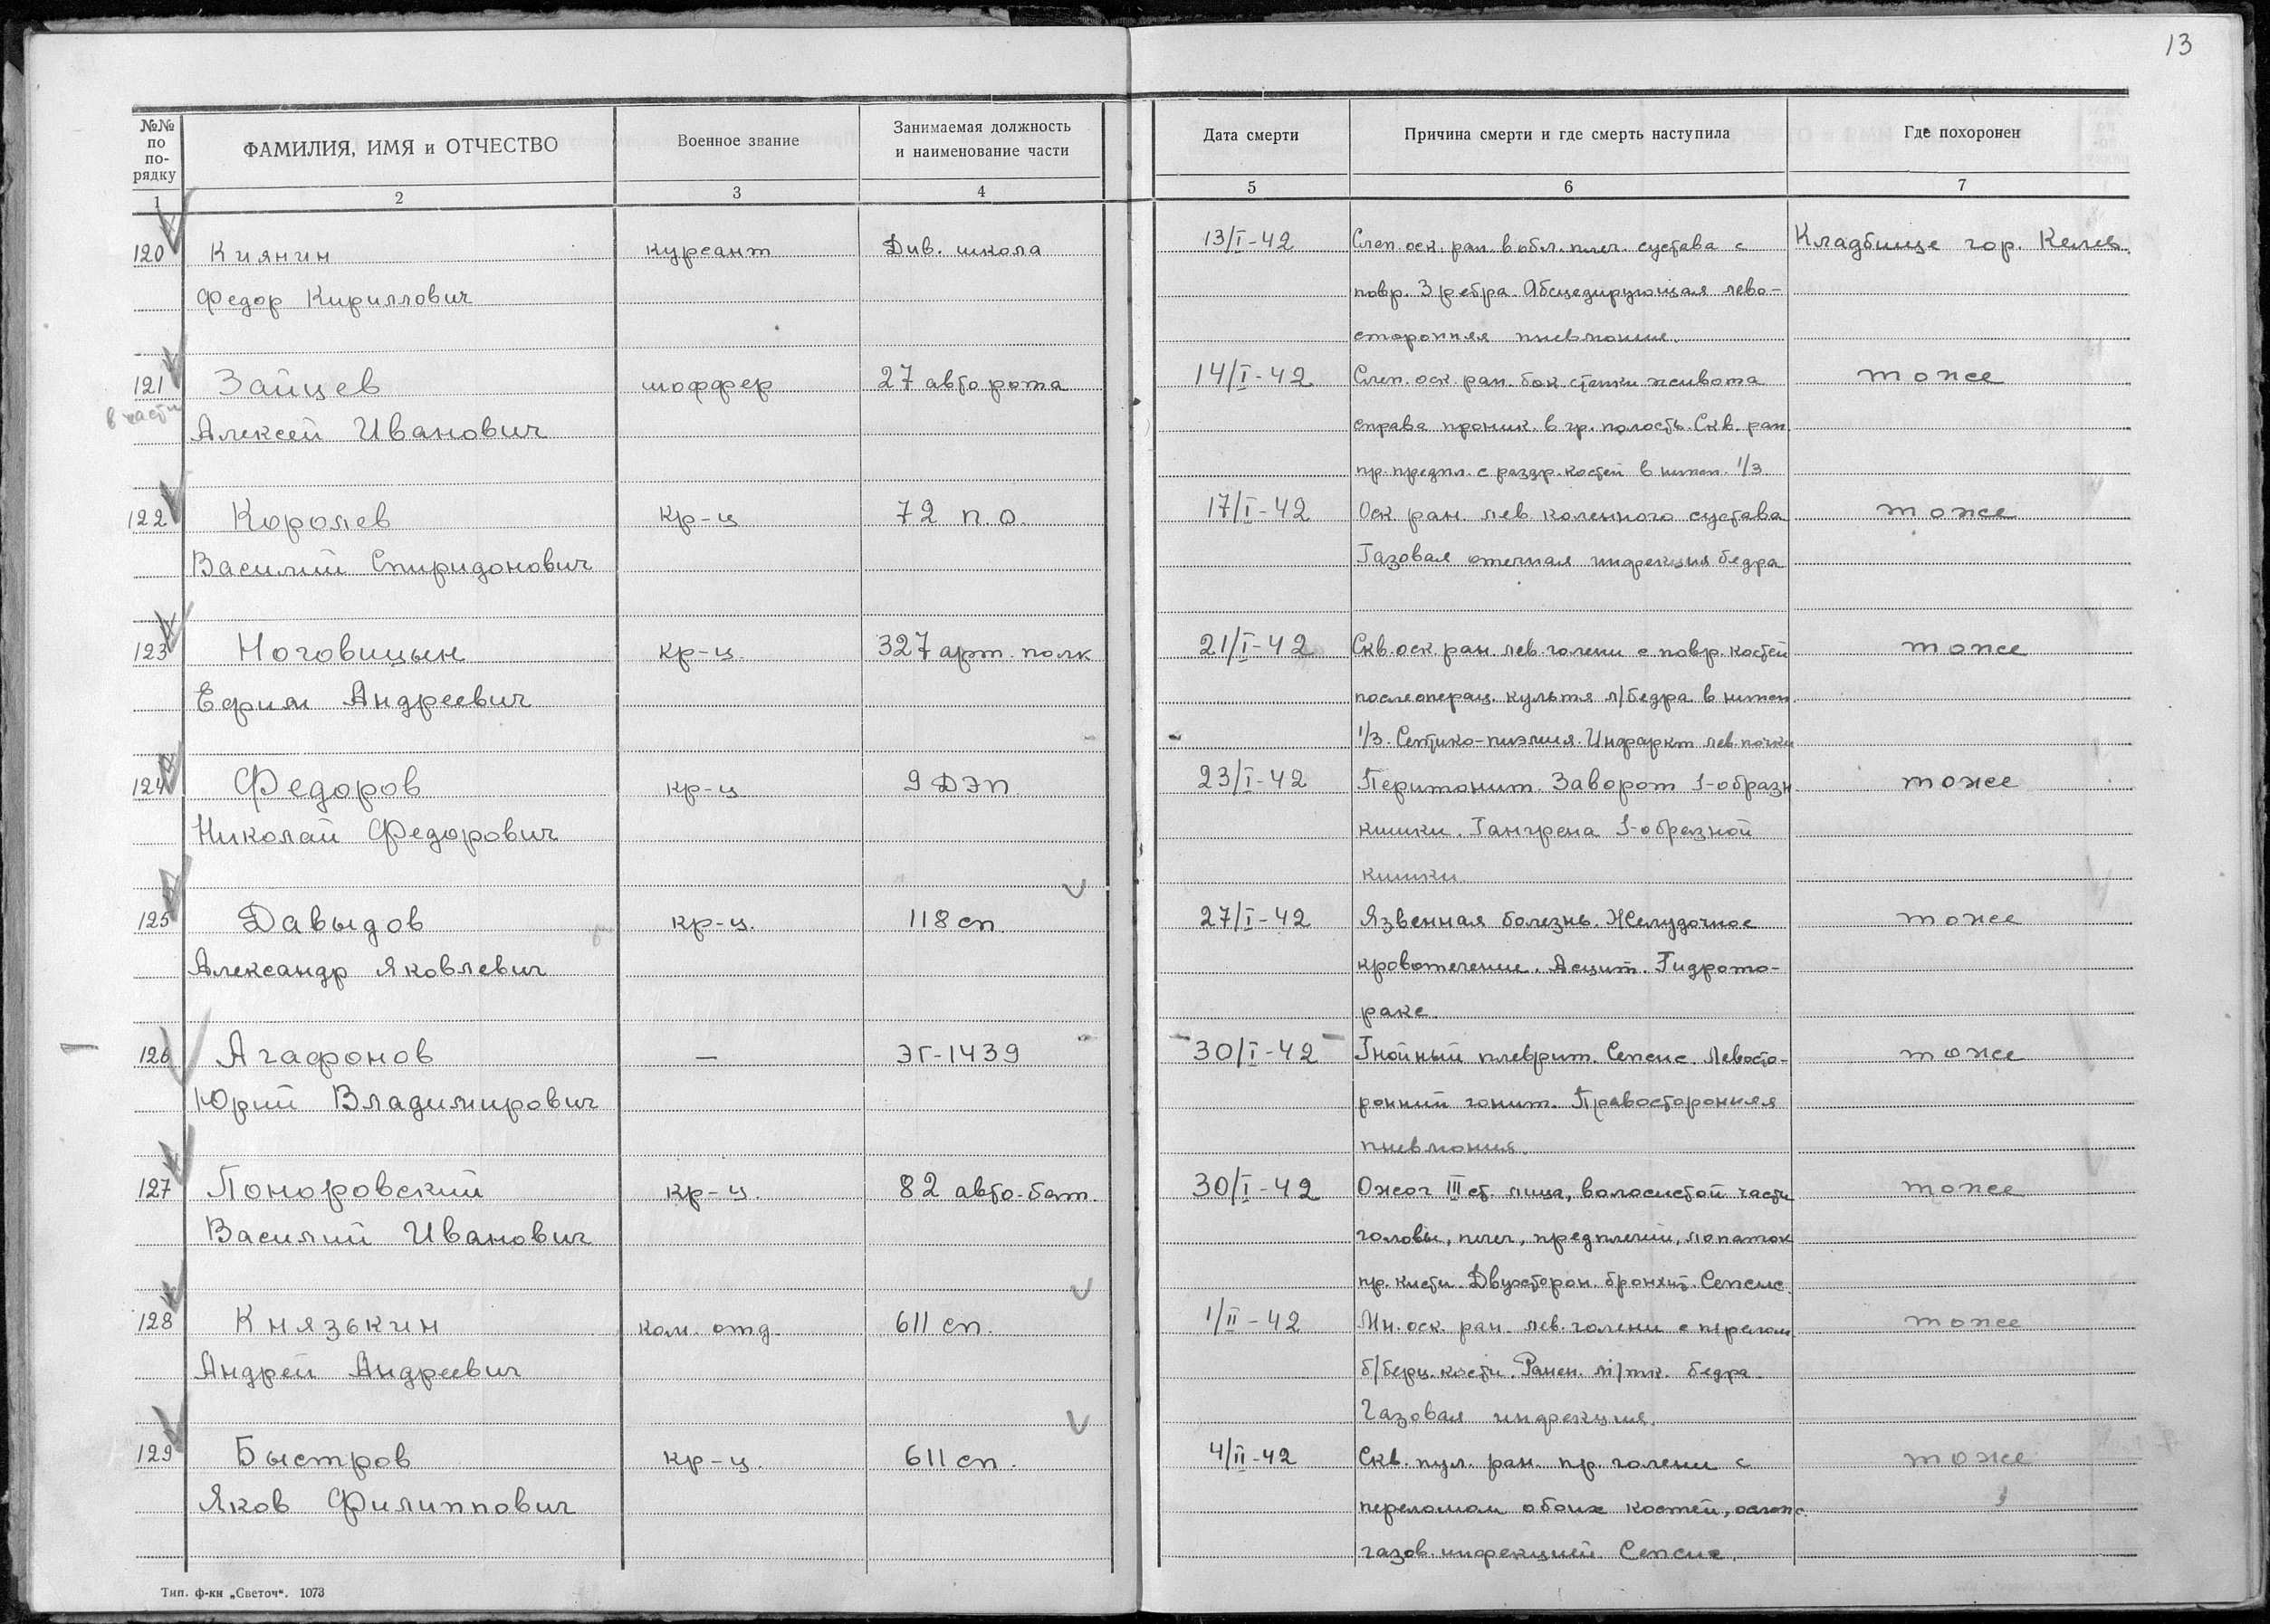 13
№№ по по- рядку
ФАМИЛИЯ, ИМЯ и ОТЧЕСТВО
Военное звание
Занимаемая должность и наименование части
Дата смерти
Причина смерти и где смерть наступила
Где похоронен
1 2 3 4 5 6 7
120 Киянин курсант Див. школа 13/I-42 Слеп. оск. ран. в обл. плеч. сустава с Кладбище гор.
Федор Кириллович повр. 3 ребра. Абсцедирующая лево-
сторонняя пневмония.
121 Зайцев шоффер 27 авто рота 14/I-42 Слеп. оск. ран. бок. стенки живота тоже
в части
Алексей Иванович справа проник. в гр. полость. Скв. ран.
пр. предпл. с раздр. костей в нижн. 1/3
122 Королев кр-ц 72 п.о. 17/I-42 Оск. ран. лев. коленного сустава тоже
Василий Спиридонович Газовая отечная инфекция бедра
123 Ноговицын кр-ц. 327 арт. полк 21/I-42 Скв. оск. ран. лев. голени с повр. костей тоже
Ефим Андреевич послеоперац. культя л/бедра в нижн.
1/3. Септико-пиэмия. Инфаркт лев. почки
124 Федоров кр-ц 9 ДЭП 23/I-42 Перитонит. Заворот S-образн. тоже
Николай Федорович кишки. Гангрена S-образной
кишки.
125 Давыдов кр-ц. 118 сп 27/I-42 Язвенная болезнь. Желудочное тоже
Александр Яковлевич кровотечение. Асцит. Гидрото-
ракс.
126 Агафонов — ЭГ-1439 30/I-42 Гнойный плеврит. Сепсис. Левосто- тоже
Юрий Владимирович ронний гонит. Правосторонняя
пневмония.
127 Поноровский кр-ц. 82 авто-бат. 30/I-42 Ожог III ст. лица, волосистой части тоже
Василий Иванович головы, плеч, предплечий, лопаток
пр. кисти. Двухсторон. бронхит. Сепсис.
128 Князькин ком. отд. 611 сп. 1/II-42 Мн. оск. ран. лев. голени с перелом. тоже
Андрей Андреевич б/берц. кости. Ранен. м/тк. бедра.
Газовая инфекция.
129 Быстров кр-ц. 611 сп. 4/II-42 Скв. пул. ран. пр. голени с тоже
Яков Филиппович переломом обоих костей, ослож.
газов. инфекцией. Сепсис.
Тип. ф-ки „Светоч“. 1073